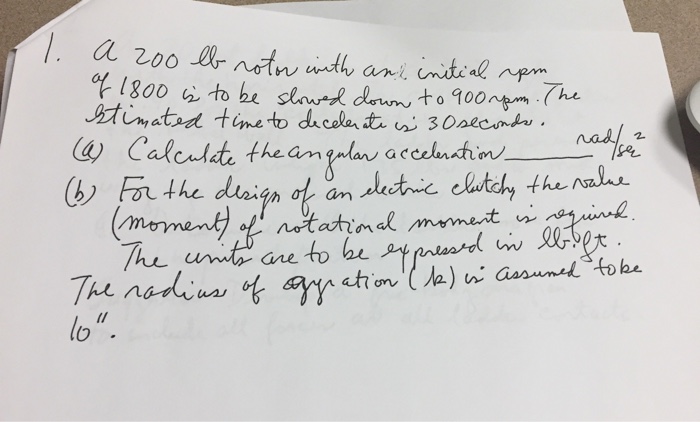 1. A 200 lb rotor with an initial rpm
of 1800 is to be slowed down to 900 rpm. The
estimated time to decelerate is 30 seconds.
(a) Calculate the angular acceleration ______ rad/sec²
(b) For the design of an electric clutch, the value
(moment) of rotational moment is required.
The units are to be expressed in lb·ft.
The radius of gyration (k) is assumed to be
10".